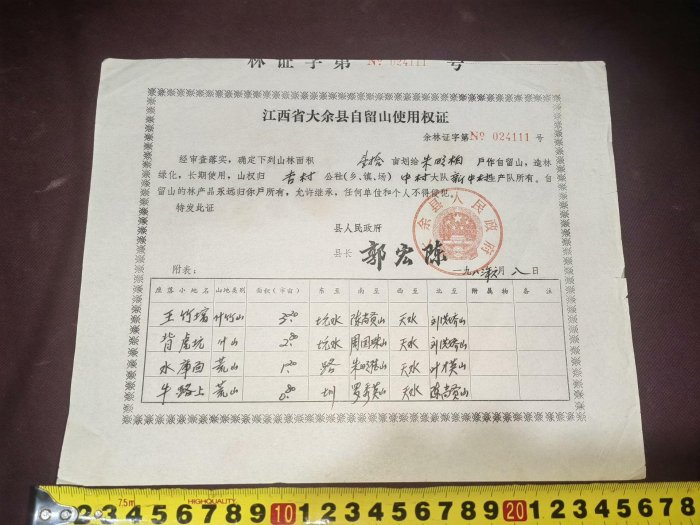 林证字第 № 024111 号
江西省大余县自留山使用权证
余林证字第№ 024111 号
经审查落实，确定下列山林面积 亩划给 朱明相 户作自留山，造林
绿化，长期使用，山权归 吉村 公社(乡、镇、场) 中村 大队 新中村 生产队所有。自
留山的林产品永远归你户所有，允许继承，任何单位和个人不得侵犯。
特发此证
县人民政府
县长 郭宏陈
大余县人民政府
附表： 一九八 年 月 八 日
座落小地名 山地类别 面积(市亩) 东至 南至 西至 北至 附属物 备注
王竹塆 竹山 3 坑水 陈尚贡山 天水 刘洪桥山
背屋坑 竹山 2 坑水 周国 山 天水 刘洪桥山
水 西 荒山 1 路 朱明 山 天水 叶 山
牛路上 荒山 0.80 圳 罗 山 天水 陈尚贡山
7.5m HIGH QUALITY
2 3 4 5 6 7 8 9 10 1 2 3 4 5 6 7 8 9 20 1 2 3 4 5 6 7 8